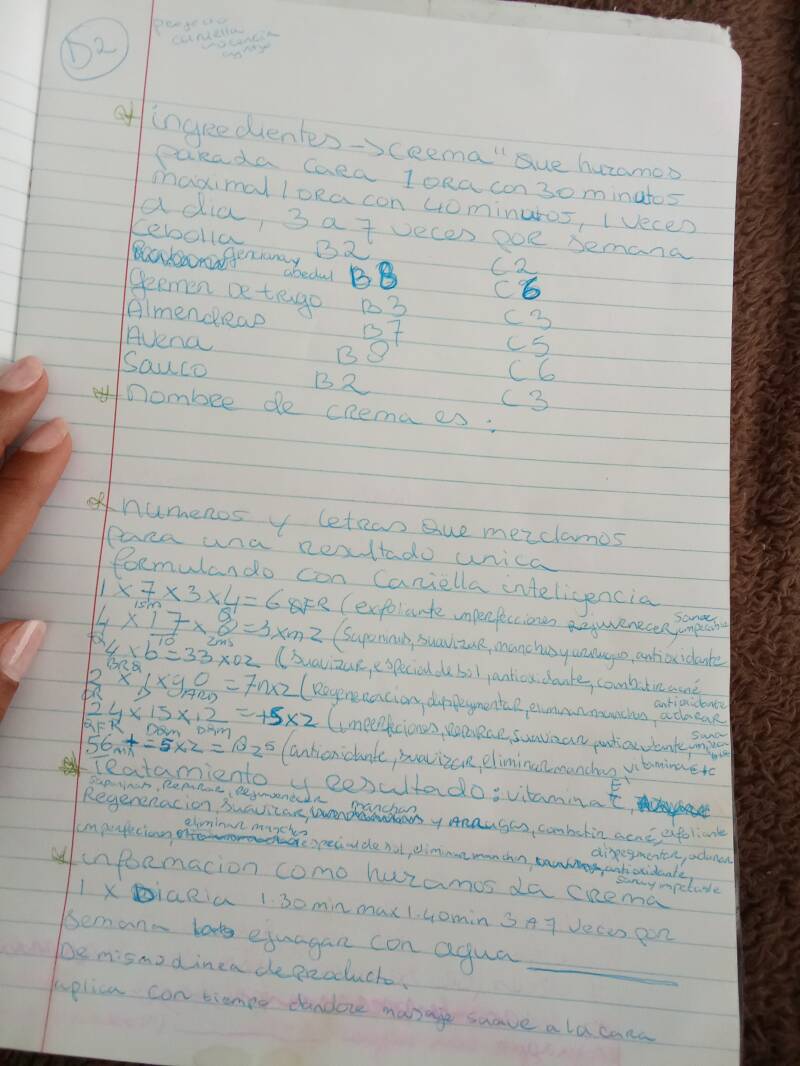 D2
ingredientes → crema" que huramos
parada cara 1 ora con 30 minutos
maximal 1 ora con 40 minutos, 1 veces
a dia, 3 a 7 veces por semana
Cebolla B2 C2
genciana y abedul B8 C6
Germen De trigo B3 C3
Almendras B7 C5
Avena B8 C6
Sauco B2 C3
nombre de crema es:
numeros y letras que mezclamos
para una resultado unica
formulando con Cariëlla inteligencia
1 x 7 x 3 x 4 = 6 (exfoliante imperfecciones rejuvenecer,
15m
(suavizar, manchas y arrugas, antioxidante
10 2ms
4 x 6 = 33 x 02 (suavizar, especial de sol, antioxidante, combatir acné,
= 7n x 2 (Regeneracion, dispegmentar, eliminar manchas, aclarar
antioxidante
24 x 15 x 12 = +5 x 2 (imperfeciones, reparar, suavizar, antioxidante,
56 + = 5 x 2 = (antioxidante, suavizar, eliminar manchas, vitamina E+C
Tratamiento y Resultado: vitamina E,
Reparar, Rejuvenecer manchas
Regeneracion, suavizar, y ARRugas, combatir acné, exfoliante
eliminar manchas dispegmentar, aclarar
imperfecion, especial de sol, eliminar manchas, antioxidante,
informacion como huramos La crema
1 x Diaria 1.30 min max 1.40 min 3 A 7 veces por
semana ejuagar con agua
De mismo Linea de producto.
aplica con tiempo dandore masaje suave a la cara